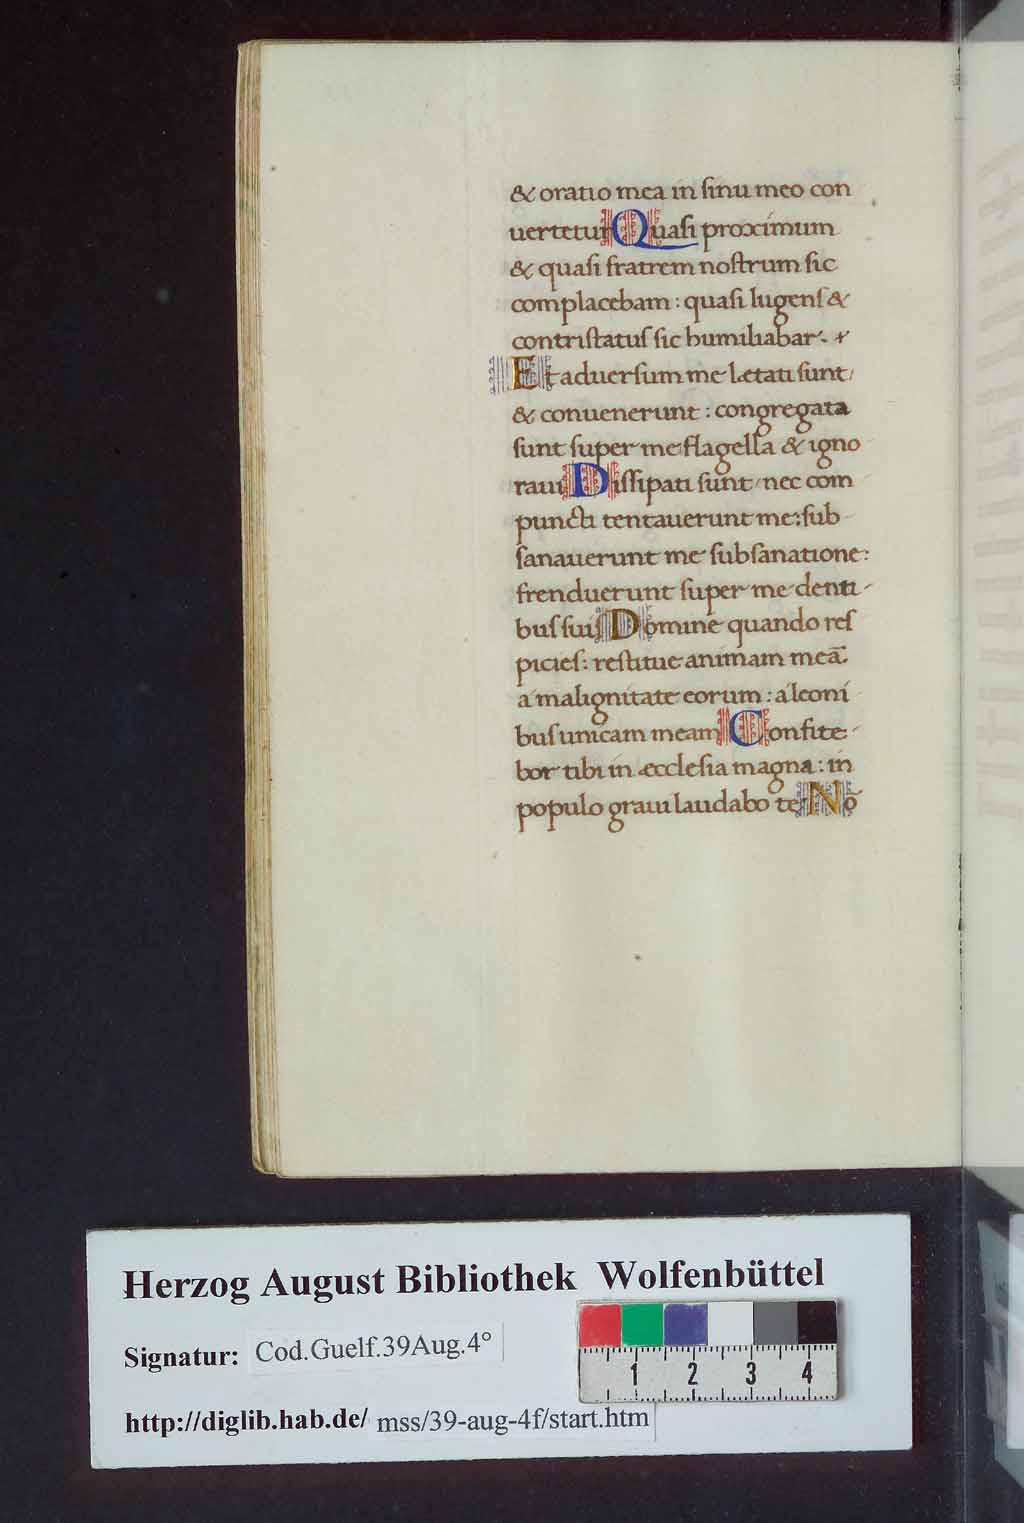 & oratio mea in ſinu meo con
uertetur Quaſi proximum
& quaſi fratrem noſtrum ſic
complacebam : quaſi lugenſ &
contriſtatuſ ſic humiliabar .
Et aduerſum me lętati ſunt /
& conuenerunt : congregata
ſunt ſuper me flagella & igno
raui Diſſipati ſunt / nec com
puncti tentauerunt me : ſub
ſanauerunt me ſubſanatione :
frenduerunt ſuper me denti
buſ ſuiſ Domine quando reſ
picieſ : reſtitue animam meā
a malignitate eorum : a leoni
buſ unicam meam Confite
bor tibi in æccleſia magna : in
populo graui laudabo te Nō
Herzog August Bibliothek Wolfenbüttel
Signatur: Cod.Guelf.39Aug.4°
http://diglib.hab.de/ mss/39-aug-4f/start.htm
1 2 3 4